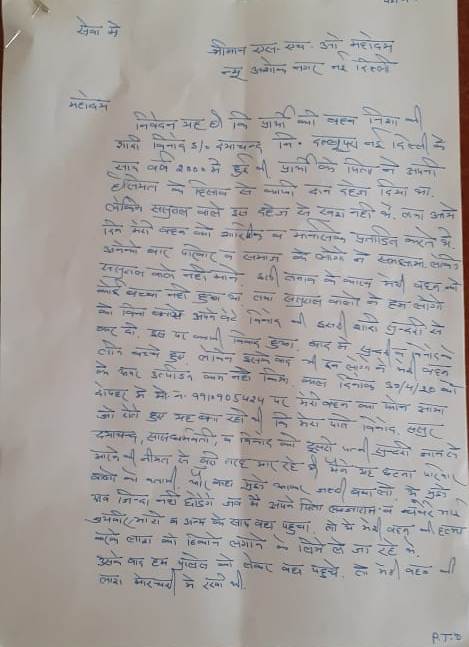 सेवा में
श्रीमान एस. एच. ओ महोदय
न्यू अशोक नगर नई दिल्ली
महोदय
निवेदन यह है कि प्रार्थी की बहन निशा की
शादी विनोद S/o दयाचन्द नि॰ दल्लुपुरा नई दिल्ली के
साथ वर्ष 2000 में हुई थी प्रार्थी के पिता ने अपनी
हैसियत के हिसाब से काफी दान दहेज दिया था.
लेकिन ससुराल वाले इस दहेज से खुश नहीं थे. तथा आये
दिन मेरी बहन को शारीरिक व मानसिक प्रताडित करते थे.
अनेको बार परिवार व समाज के लोगो ने समझाया लेकिन
ससुराल वाले नहीं माने. इसी तनाव के कारण मेरी बहन को
कोई बच्चा नहीं हुआ था. तथा ससुराल वालो ने हम लोगो
को बिना बताये अपने बेटे विनोद की दूसरी शादी सुन्दरी से
कर दी. इस पर काफी विवाद हुआ. बाद में सुन्दरी व विनोद के
तीन बच्चे हुए लेकिन इसके बाद भी इन लोगो ने मेरी बहन
के ऊपर उत्पीडन कम नहीं किया. कल दिनांक 30/4/20 को
दोपहर में मो. न. 9910905424 पर मेरी बहन का फोन आया
जो रोते हुए यह बता रही थी कि मेरा पति विनोद, ससुर
दयाचन्द, सास व विनोद की दूसरी पत्नी सुन्दरी जान से
मारने की नीयत से बुरी तरह मार रहे है मैने यह घटना परिवार
वालो को बतायी और कहा मुझे आकर जल्दी बचा लो. ये मुझे
अब जिन्दा नहीं छोडेंगे जब मै अपने पिता व
व अन्य के साथ वहा पहुचा. तो ये मेरी बहन की हत्या
करके लाश को ठिकाने लगाने के लिये ले जा रहे थे.
उसके बाद हम पुलिस को लेकर वहा पहुचे. तो मेरी बहन की
लाश मोरचरी मे रखी थी.
P.T.O